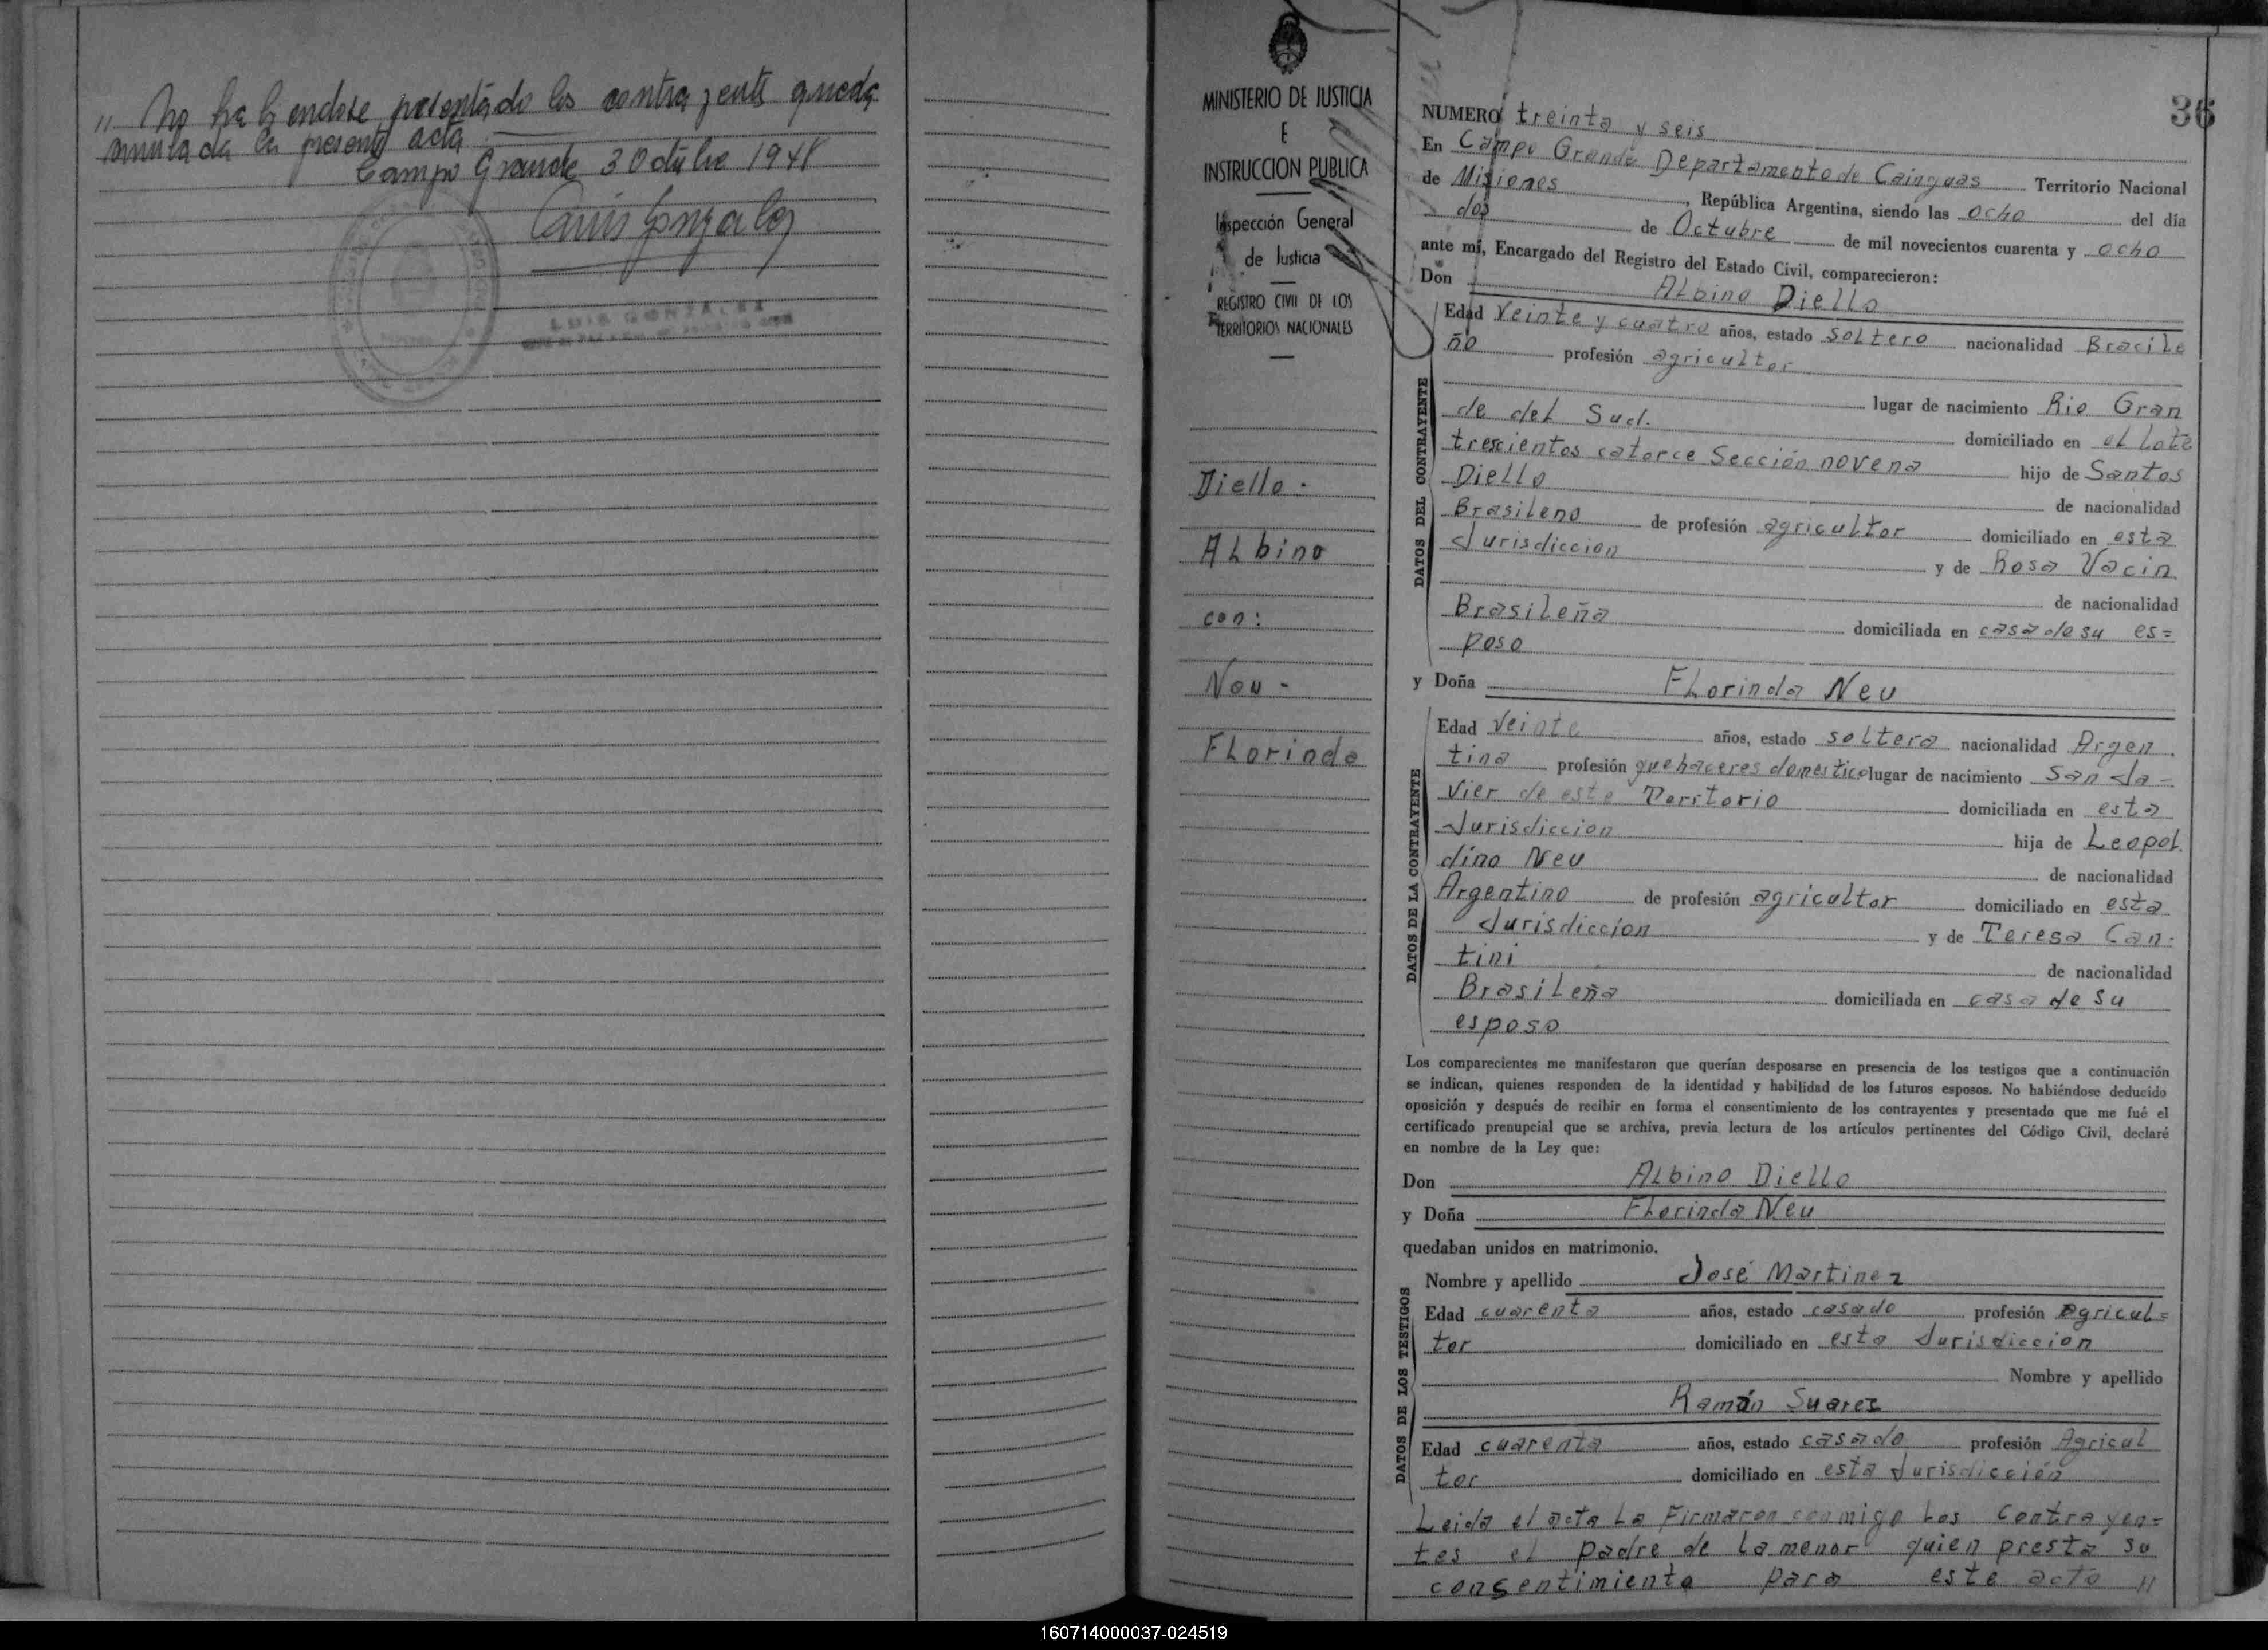 " No habiendose presentado los contrayents queda
anulada la presente acta
Campo Grande 3 Octubre 1948
Luis Gonzalez
LUIS GONZALEZ
MINISTERIO DE JUSTICIA
E
INSTRUCCION PUBLICA
Inspección General
de Justicia
REGISTRO CIVIL DE LOS
TERRITORIOS NACIONALES
Diello -
Albino
con:
Neu -
Florinda
36
NUMERO treinta y seis
En Campo Grande Departamento de Cainguas Territorio Nacional
de Misiones, República Argentina, siendo las ocho del día
dos de Octubre de mil novecientos cuarenta y ocho
ante mí, Encargado del Registro del Estado Civil, comparecieron:
Don Albino Diello
DATOS DEL CONTRAYENTE
Edad Veinte y cuatro años, estado soltero nacionalidad Bracile
ño profesión agricultor
lugar de nacimiento Rio Gran
de del Sud. domiciliado en el Lote
trescientos catorce Sección novena hijo de Santos
Diello de nacionalidad
Brasileno de profesión agricultor domiciliado en esta
Jurisdiccion y de Rosa Vacin
de nacionalidad
Brasileña domiciliada en casa de su es=
poso
y Doña Florinda Neu
DATOS DE LA CONTRAYENTE
Edad Veinte años, estado soltera nacionalidad Argen
tina profesión quehaceres domestico lugar de nacimiento San Ja-
vier de este Territorio domiciliada en esta
Jurisdiccion hija de Leopol.
dino Neu de nacionalidad
Argentino de profesión agricultor domiciliado en esta
Jurisdiccion y de Teresa Can-
tini de nacionalidad
Brasileña domiciliada en casa de su
esposo
Los comparecientes me manifestaron que querían desposarse en presencia de los testigos que a continuación
se indican, quienes responden de la identidad y habilidad de los futuros esposos. No habiéndose deducido
oposición y después de recibir en forma el consentimiento de los contrayentes y presentado que me fué el
certificado prenupcial que se archiva, previa lectura de los artículos pertinentes del Código Civil, declaré
en nombre de la Ley que:
Don Albino Diello
y Doña Florinda Neu
quedaban unidos en matrimonio.
DATOS DE LOS TESTIGOS
Nombre y apellido José Martinez
Edad cuarenta años, estado casado profesión agricul=
tor domiciliado en esta Jurisdiccion
Nombre y apellido
Ramón Suarez
Edad cuarenta años, estado casado profesión Agricul
tor domiciliado en esta Jurisdicción
Leida el acta la Firmaron conmigo los Contrayen=
tes el padre de la menor quien presta su
consentimiento para este acto "
160714000037-024519